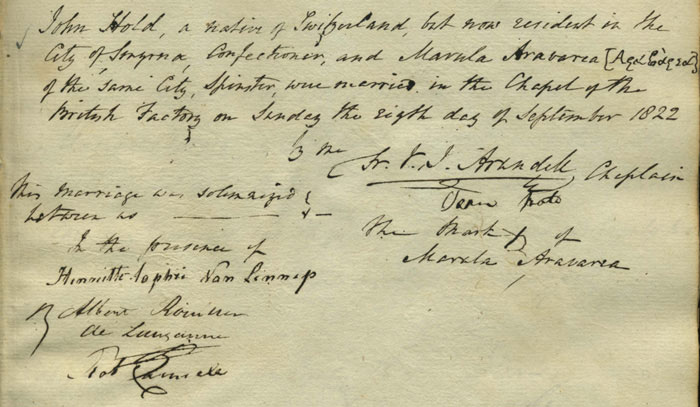 John Hold, a native of Switzerland, but now resident in the
City of Smyrna, Confectioner, and Marula Aravarea
of the same City, Spinster, were married in the Chapel of the
British Factory on Sunday the eigth day of September 1822
by me Fr. V. J. Arundell, Chaplain
This marriage was solemnized
between us
In the presence of
The Mark X of
Henriette Sophie Van Lennep
Marula Aravarea
Albert
de Lausanne